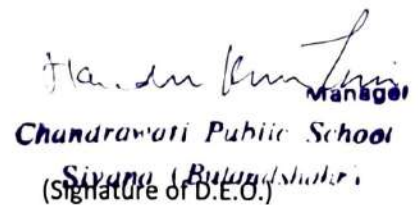 Kumar
Manager
Chandrawati Public School
Siyana (Bulandshahr)
(Signature of D.E.O.)